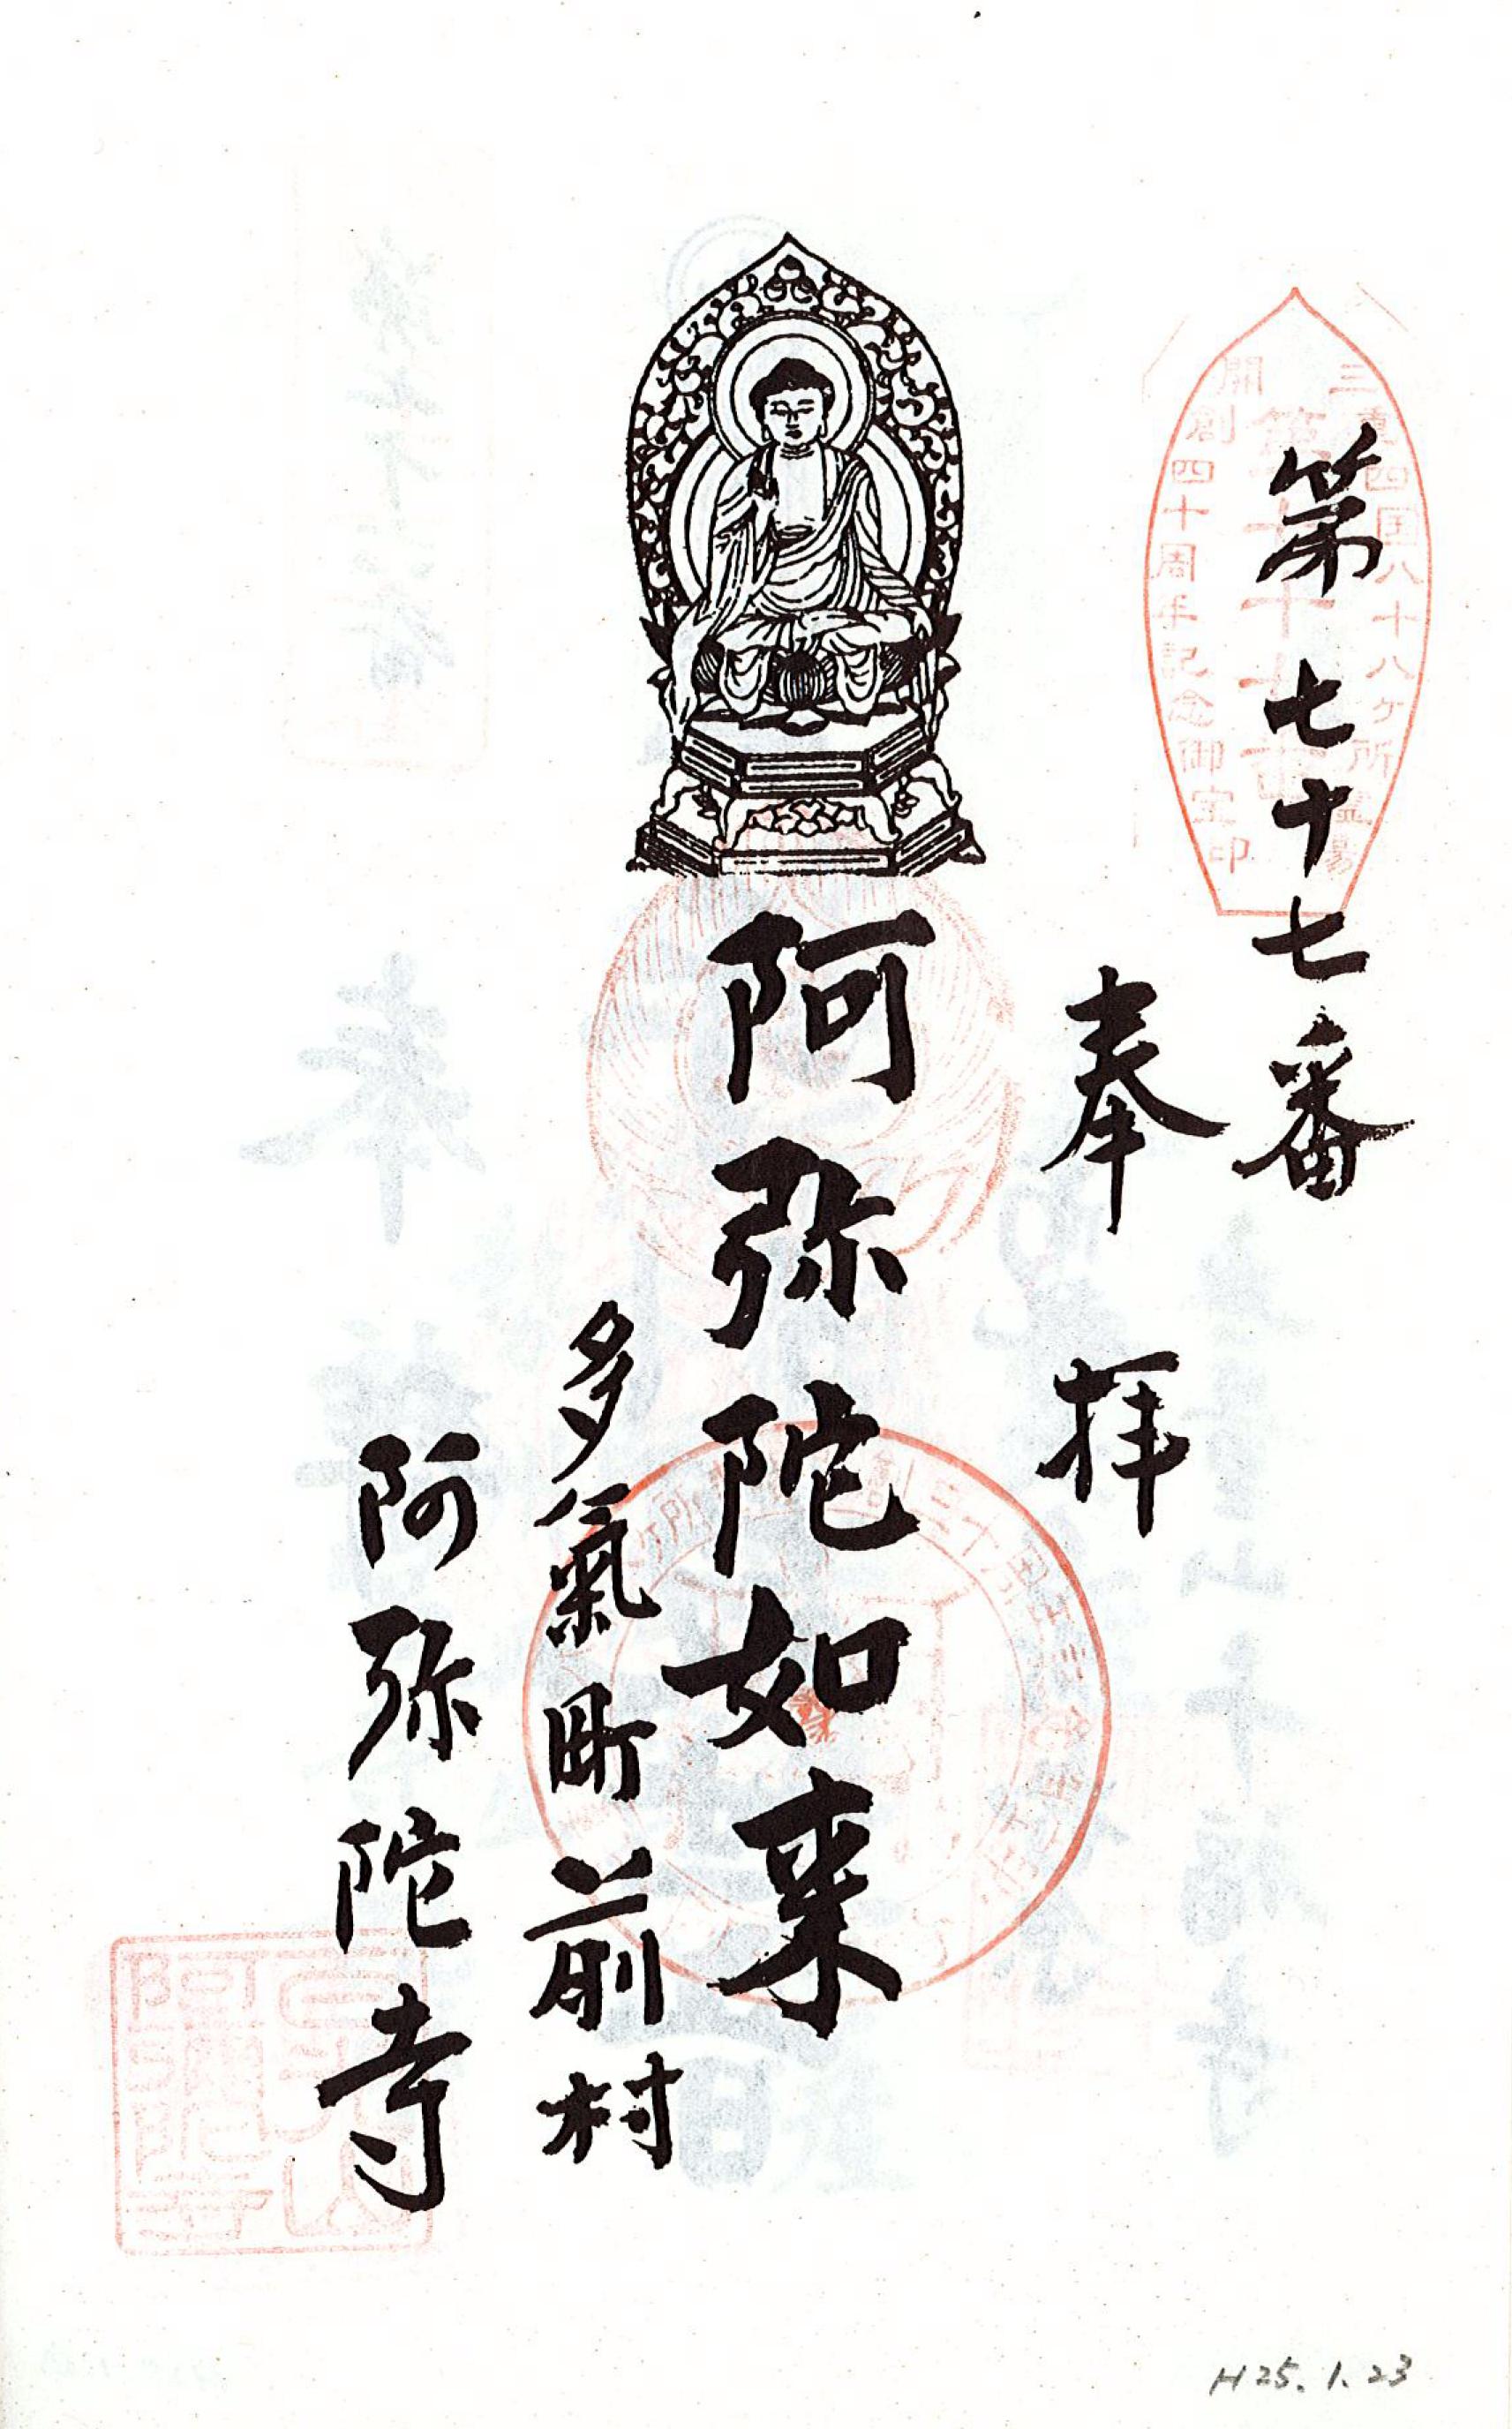 第七十七番
三重四国八十八ヶ所霊場
第七十七番
開創四十周年記念御宝印
奉拝
阿弥陀如来
多氣町前村
阿弥陀寺
阿弥陀寺
H25.1.23